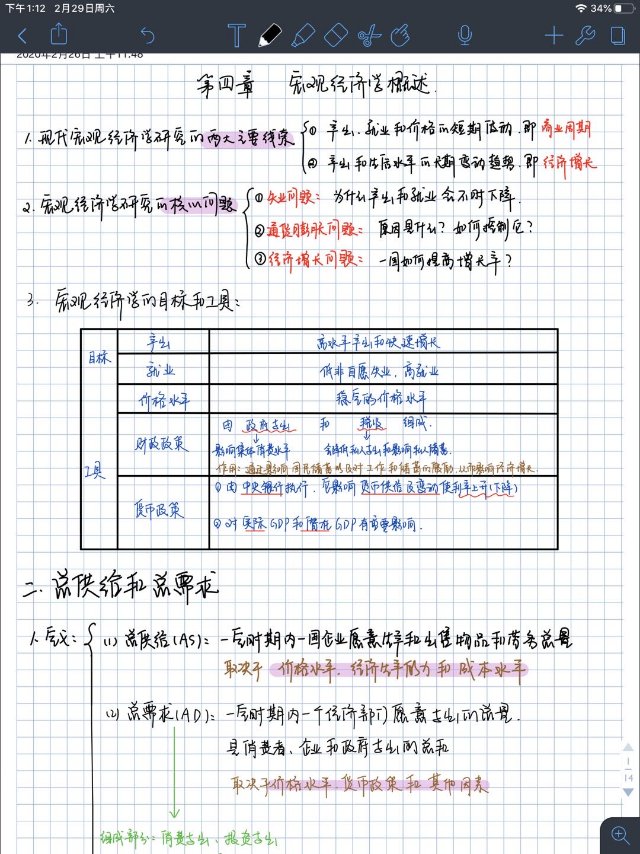 下午1:12 2月29日周六
34%
2020年2月26日 上午11:48
第四章 宏观经济学概述.
1. 现代宏观经济学研究的两大主要线索
① 产出、就业和价格的短期波动, 即 商业周期
② 产出和生活水平的长期变动趋势, 即 经济增长
2. 宏观经济学研究的核心问题
① 失业问题: 为什么产出和就业会不时下降.
② 通货膨胀问题: 原因是什么? 如何控制它?
③ 经济增长问题: 一国如何提高增长率?
3. 宏观经济学的目标和工具:
目标 产出 高水平产出和快速增长
就业 低非自愿失业, 高就业
价格水平 稳定的价格水平
工具 财政政策 由 政府支出 和 税收 组成.
影响集体消费水平 会降低私人支出和影响私人储蓄.
作用: 通过影响国民储蓄以及对工作和储蓄的激励, 从而影响经济增长.
货币政策 ① 由中央银行执行, 它影响货币供给及变动使利率上升(下降)
② 对实际GDP和潜在GDP有重要影响.
二. 总供给和总需求
1. 定义: (1) 总供给(AS): 一定时期内一国企业愿意生产和出售物品和劳务总量
取决于 价格水平、经济生产能力和成本水平
(2) 总需求(AD): 一定时期内一个经济部门愿意支出的总量.
是消费者、企业和政府支出的总和
取决于价格水平、货币政策和其他因素
组成部分: 消费支出、投资支出
1
14